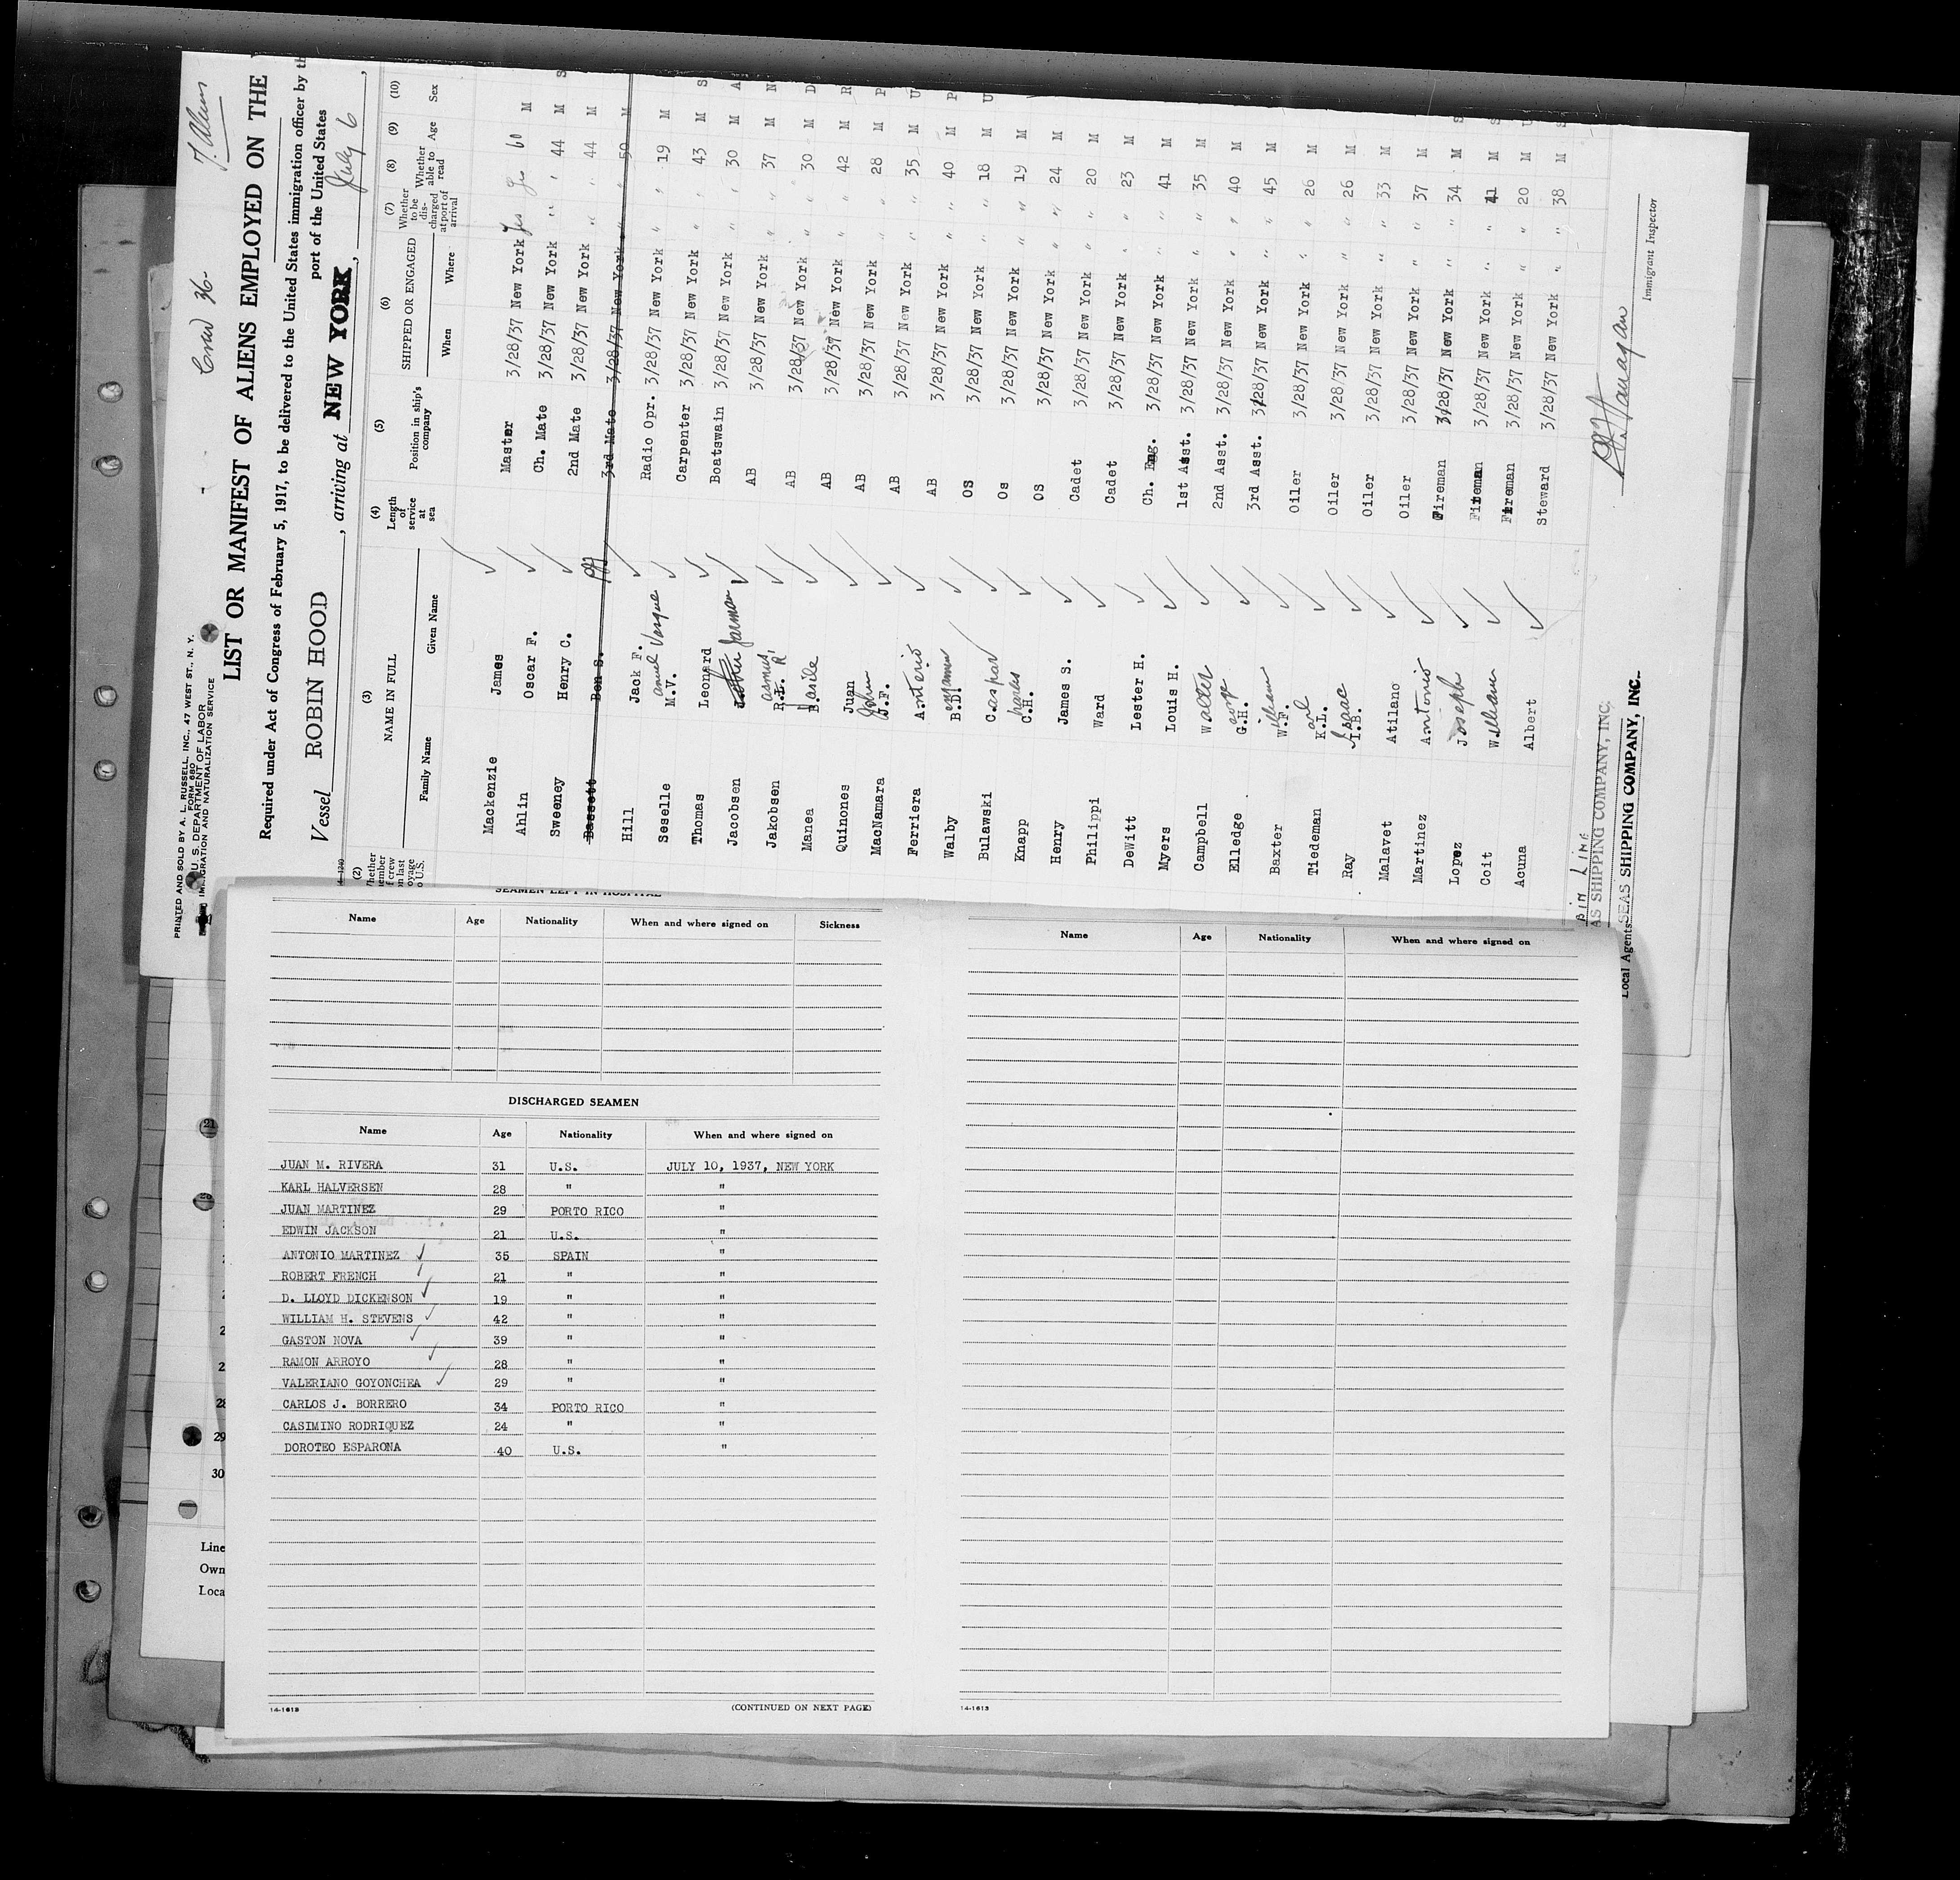 J. Ahern
Crew 36-
PRINTED AND SOLD BY A. L. RUSSELL, INC., 47 WEST ST., N. Y.
FORM 680
U. S. DEPARTMENT OF LABOR
IMMIGRATION AND NATURALIZATION SERVICE
LIST OR MANIFEST OF ALIENS EMPLOYED ON THE
Required under Act of Congress of February 5, 1917, to be delivered to the United States immigration officer by th
port of the United States
Vessel ROBIN HOOD , arriving at NEW YORK , July 6 ,
(2) (3) (4) (5) (6) (7) (8) (9) (10)
NAME IN FULL Length of service at sea Position in ship's company SHIPPED OR ENGAGED Whether to be discharged at port of arrival Whether able to read Age Sex
Family Name Given Name When Where
Mackenzie James Master 3/28/37 New York Yes Yes 60 M
Ahlin Oscar F. Ch. Mate 3/28/37 New York " " 44 M S
Sweeney Henry C. 2nd Mate 3/28/37 New York " " 44 M
Bassett Ben S. 3rd Mate 3/28/37 New York " " 50 M
Hill Jack F. Radio Opr. 3/28/37 New York " " 19 M
Seselle M.V. anuel Vasque Carpenter 3/28/37 New York " " 43 M S
Thomas Leonard Boatswain 3/28/37 New York " " 30 M A
Jacobsen John Jarman AB 3/28/37 New York " " 37 M N
Jakobsen R.L. asmus R AB 3/28/37 New York " " 30 M D
Manea Basile AB 3/28/37 New York " " 42 M R
Quinones Juan AB 3/28/37 New York " " 28 M P
MacNamara J.F. John AB 3/28/37 New York " " 35 M U
Ferriera Anterio AB 3/28/37 New York " " 40 M P
Walby B.D. enjamin OS 3/28/37 New York " " 18 M U
Bulawski Caspar Os 3/28/37 New York " " 19 M
Knapp C.H. harles OS 3/28/37 New York " " 24 M
Henry James S. Cadet 3/28/37 New York " " 20 M
Philippi Ward Cadet 3/28/37 New York " " 23 M
DeWitt Lester H. Ch. Eng. 3/28/37 New York " " 41 M
Myers Louis H. 1st Asst. 3/28/37 New York " " 35 M
Campbell Walter 2nd Asst. 3/28/37 New York " " 40 M
Elledge G.H. eorge 3rd Asst. 3/28/37 New York " " 45 M
Baxter W.F. illiam Oiler 3/28/37 New York " " 26 M
Tiedeman K.L. arl Oiler 3/28/37 New York " " 26 M
Ray I.B. Isaac Oiler 3/28/37 New York " " 33 M
Malavet Atilano Oiler 3/28/37 New York " " 37 M
Martinez Antonio Fireman 3/28/37 New York " " 34 M S
Lopez Joseph Fireman 3/28/37 New York " " 41 M S
Coit William Fireman 3/28/37 New York " " 20 M U
Acuna Albert Steward 3/28/37 New York " " 38 M S
BIN LINE
AS SHIPPING COMPANY, INC.
Local Agents SEAS SHIPPING COMPANY, INC.
Immigrant Inspector
SEAMEN LEFT IN HOSPITAL
Name Age Nationality When and where signed on Sickness
DISCHARGED SEAMEN
Name Age Nationality When and where signed on
JUAN M. RIVERA 31 U.S. JULY 10, 1937, NEW YORK
KARL HALVERSEN 28 " "
JUAN MARTINEZ 29 PORTO RICO "
EDWIN JACKSON 21 U.S. "
ANTONIO MARTINEZ 35 SPAIN "
ROBERT FRENCH 21 " "
D. LLOYD DICKENSON 19 " "
WILLIAM H. STEVENS 42 " "
GASTON NOVA 39 " "
RAMON ARROYO 28 " "
VALERIANO GOYONCHEA 29 " "
CARLOS J. BORRERO 34 PORTO RICO "
CASIMINO RODRIQUEZ 24 " "
DOROTEO ESPARONA 40 U.S. "
14-1613 (CONTINUED ON NEXT PAGE)
Name Age Nationality When and where signed on
14-1613
21
28
29
30
Line
Own
Loca